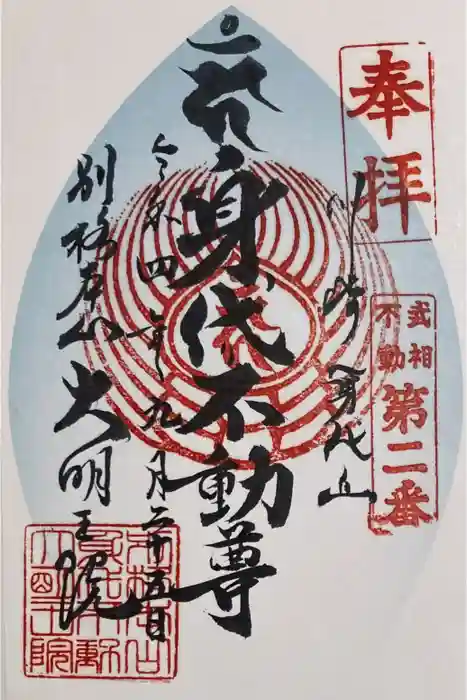 奉拝
武相
不動
第二番
川崎 身代山
身代不動尊
令和四年九月二十五日
別格本山大明王院